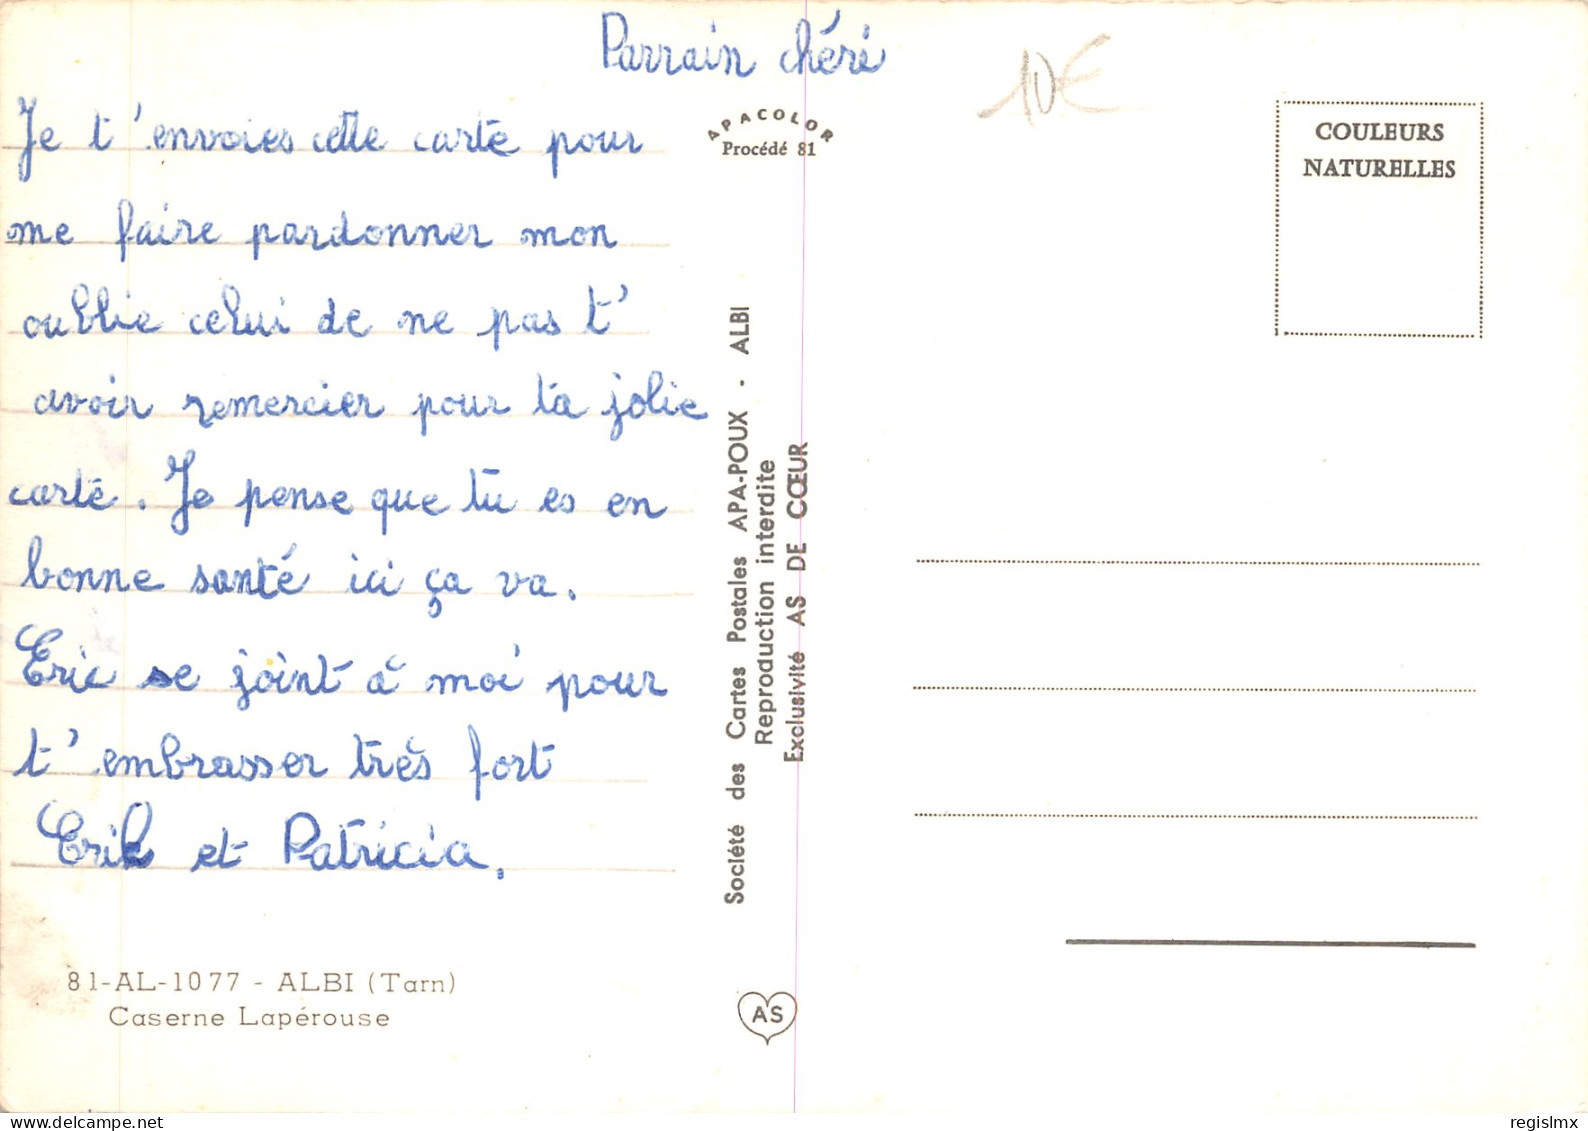 Parrain chéri
Je t'envoies cette carte pour
me faire pardonner mon
oublie celui de ne pas t'
avoir remercier pour ta jolie
carte. Je pense que tu es en
bonne santé ici ça va.
Eric se joint à moi pour
t'embrasser très fort
Erik et Patricia.
81-AL-1077 - ALBI (Tarn)
Caserne Lapérouse
APACOLOR
Procédé 81
Société des Cartes Postales APA-POUX - ALBI
Reproduction interdite
Exclusivité AS DE CŒUR
AS
10€
COULEURS
NATURELLES
regislmx